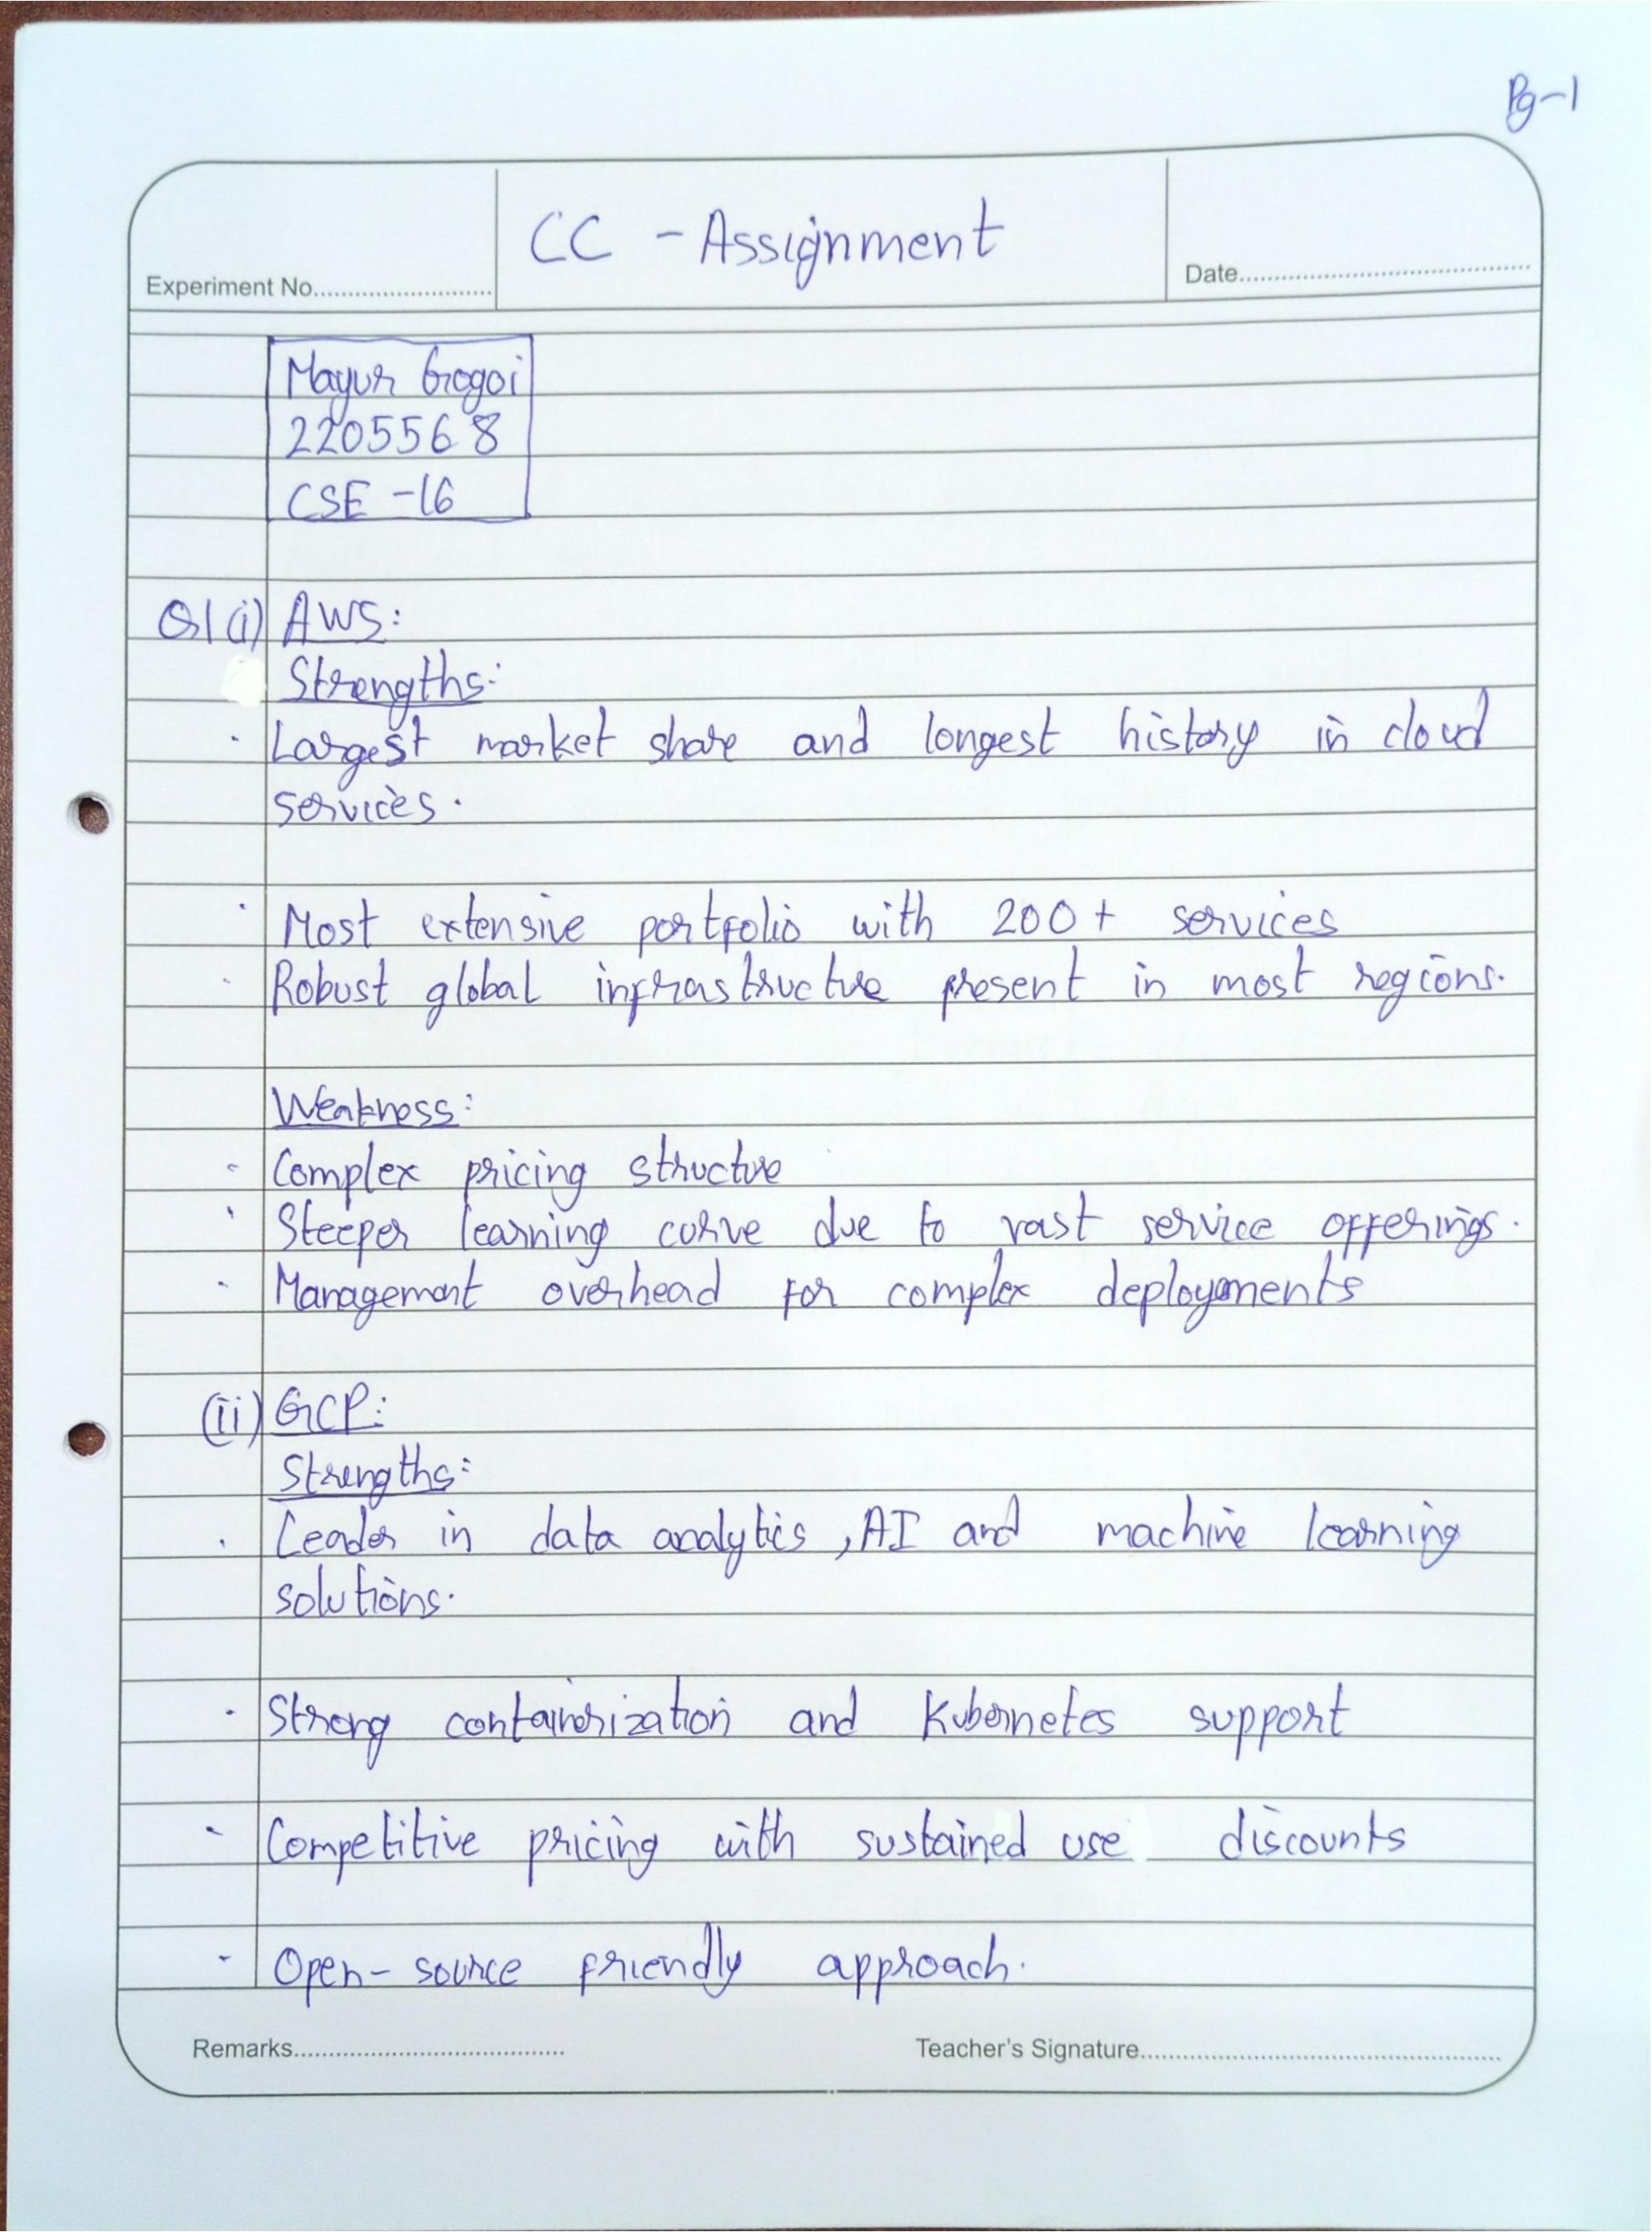 Pg-1
CC - Assignment
Experiment No..........................
Date................................................
Mayur Gogoi
2205568
CSE -16
Q1(i) AWS:
Strengths:
· Largest market share and longest history in cloud
services.
· Most extensive portfolio with 200+ services
· Robust global infrastructure present in most regions.
Weakness:
- Complex pricing structure
· Steeper learning curve due to vast service offerings.
- Management overhead for complex deployments
(ii) GCP:
Strengths:
· Leader in data analytics, AI and machine learning
solutions.
· Strong containerization and Kubernetes support
- Competitive pricing with sustained use discounts
- Open-source friendly approach.
Remarks.......................................
Teacher's Signature....................................................